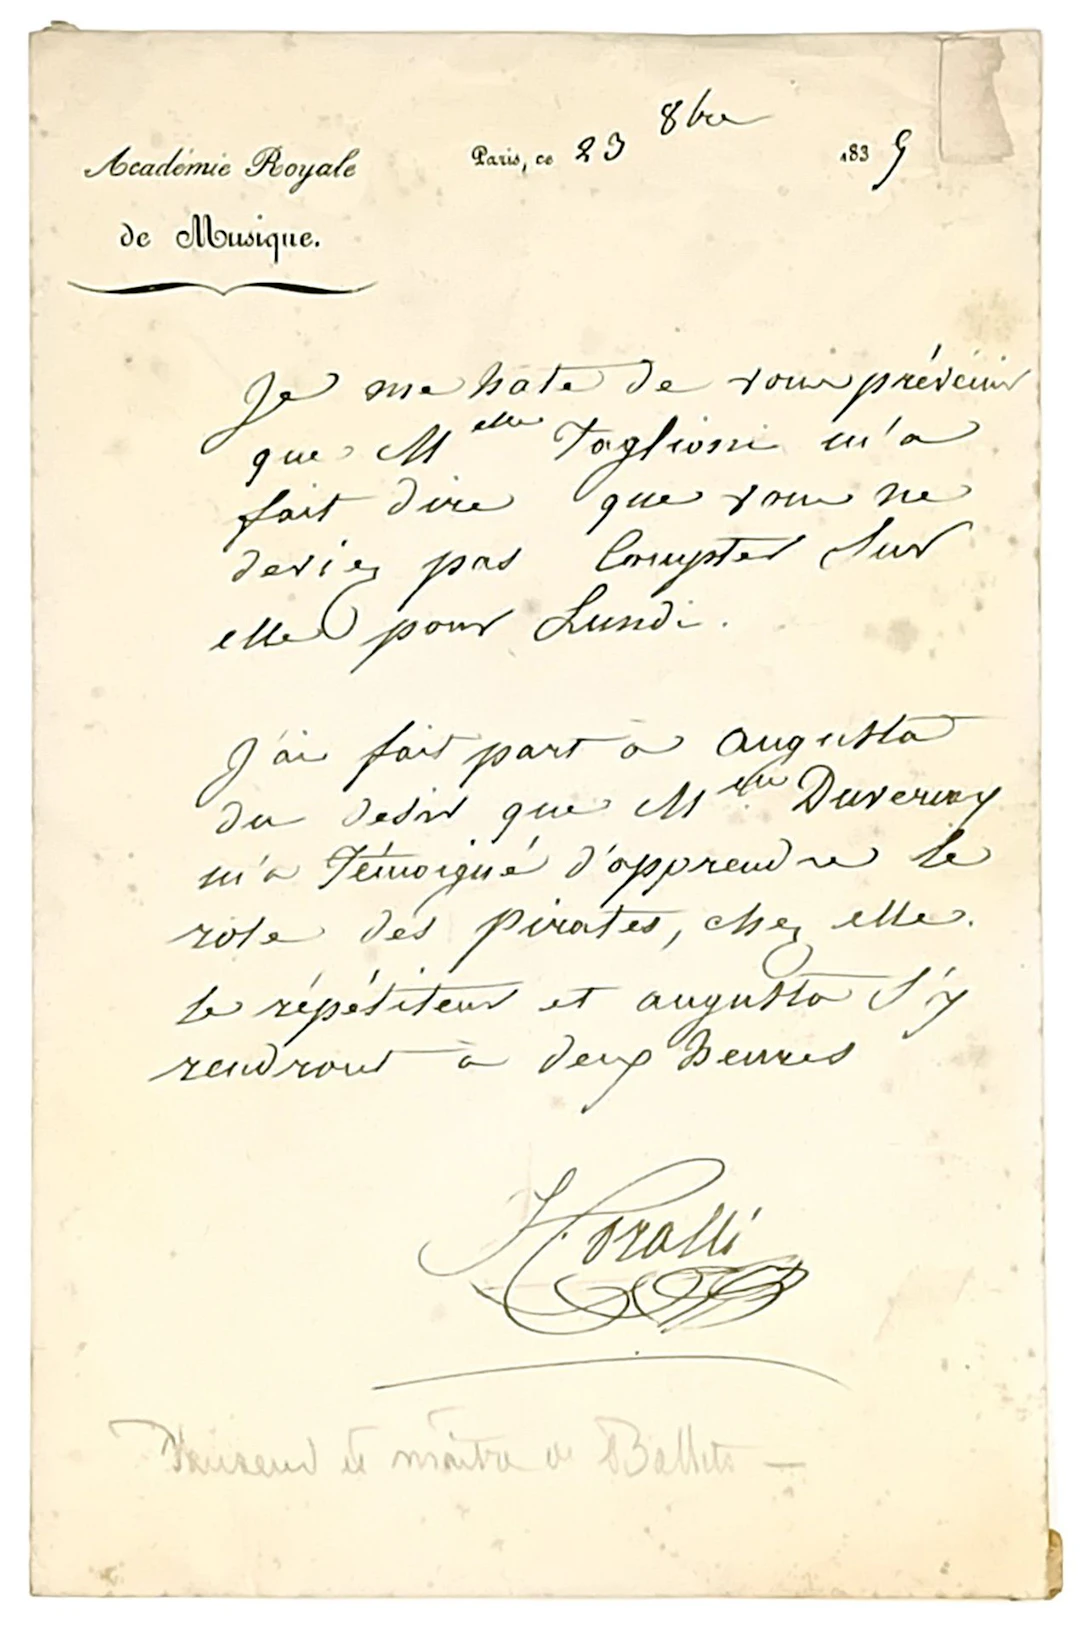 Académie Royale
de Musique.
Paris, ce 23 8bre 1835
Je me hate de vous prévenir
que Melle Taglioni m'a
fait dire que vous ne
deviez pas Compter Sur
elle pour Lundi.
J'ai fait part à augusta
du desir que Melle Duvernay
m'a témoigné d'apprendre le
role des pirates, chez elle.
le répétiteur et augusta s'y
rendront à deux heures
J. Coralli
Danseur et maître de Ballets —